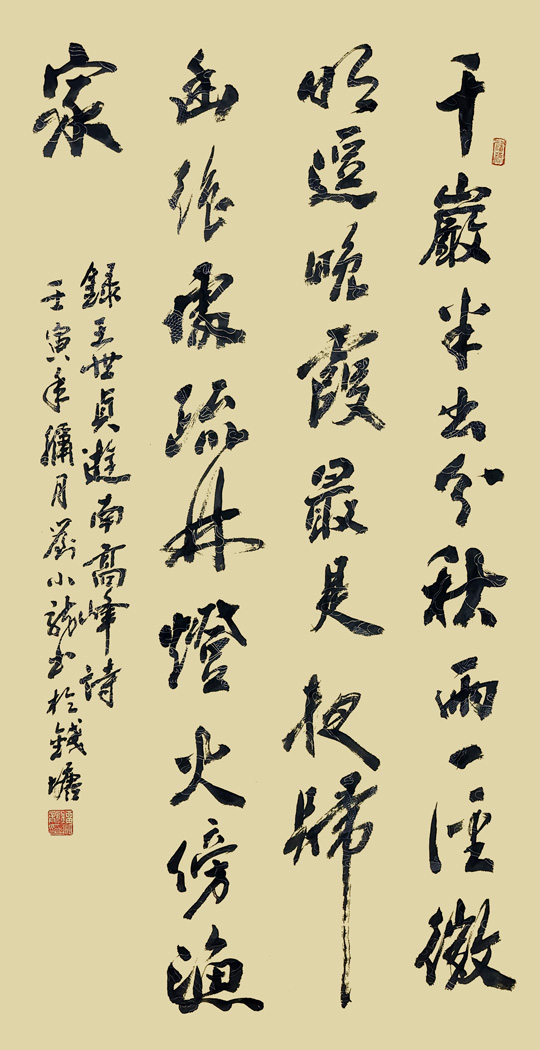 千巖半出分秋雨一徑微
明逗晚霞最是夜歸
幽絕處疏林燈火傍漁
家
錄王世貞遊南高峰詩
壬寅年臘月劉小龍書於錢塘